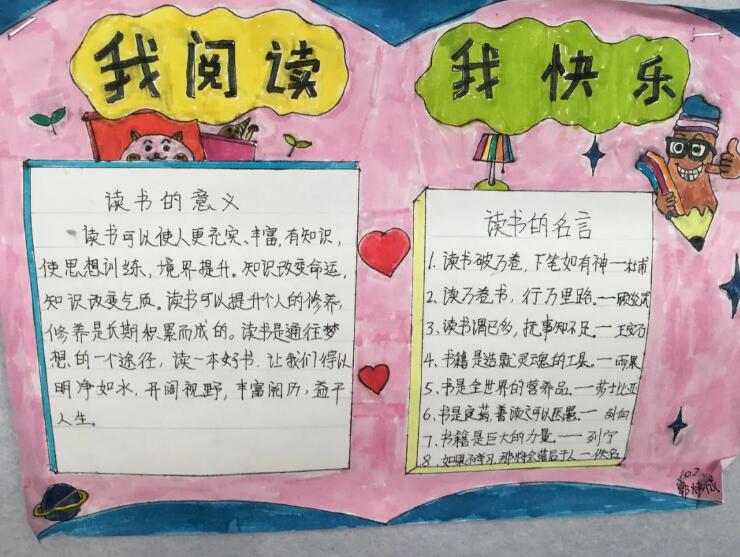 我阅读
我快乐
读书的意义
读书可以使人更充实、丰富,有知识,
使思想训练,境界提升。知识改变命运,
知识改变气质。读书可以提升个人的修养,
修养是长期积累而成的。读书是通往梦
想的一个途径,读一本好书,让我们得以
明净如水,开阔视野,丰富阅历,益于
人生。
读书的名言
1. 读书破万卷,下笔如有神—杜甫
2. 读万卷书,行万里路。——顾炎武
3. 读书谓已多,抚事知不足——王安石
4. 书籍是造就灵魂的工具。—雨果
5. 书是全世界的营养品。—莎士比亚
6. 书是良药,善读之可以医愚。—刘向
7. 书籍是巨大的力量。——列宁
8. 如果不学习,那将会落后于人—佚名
102